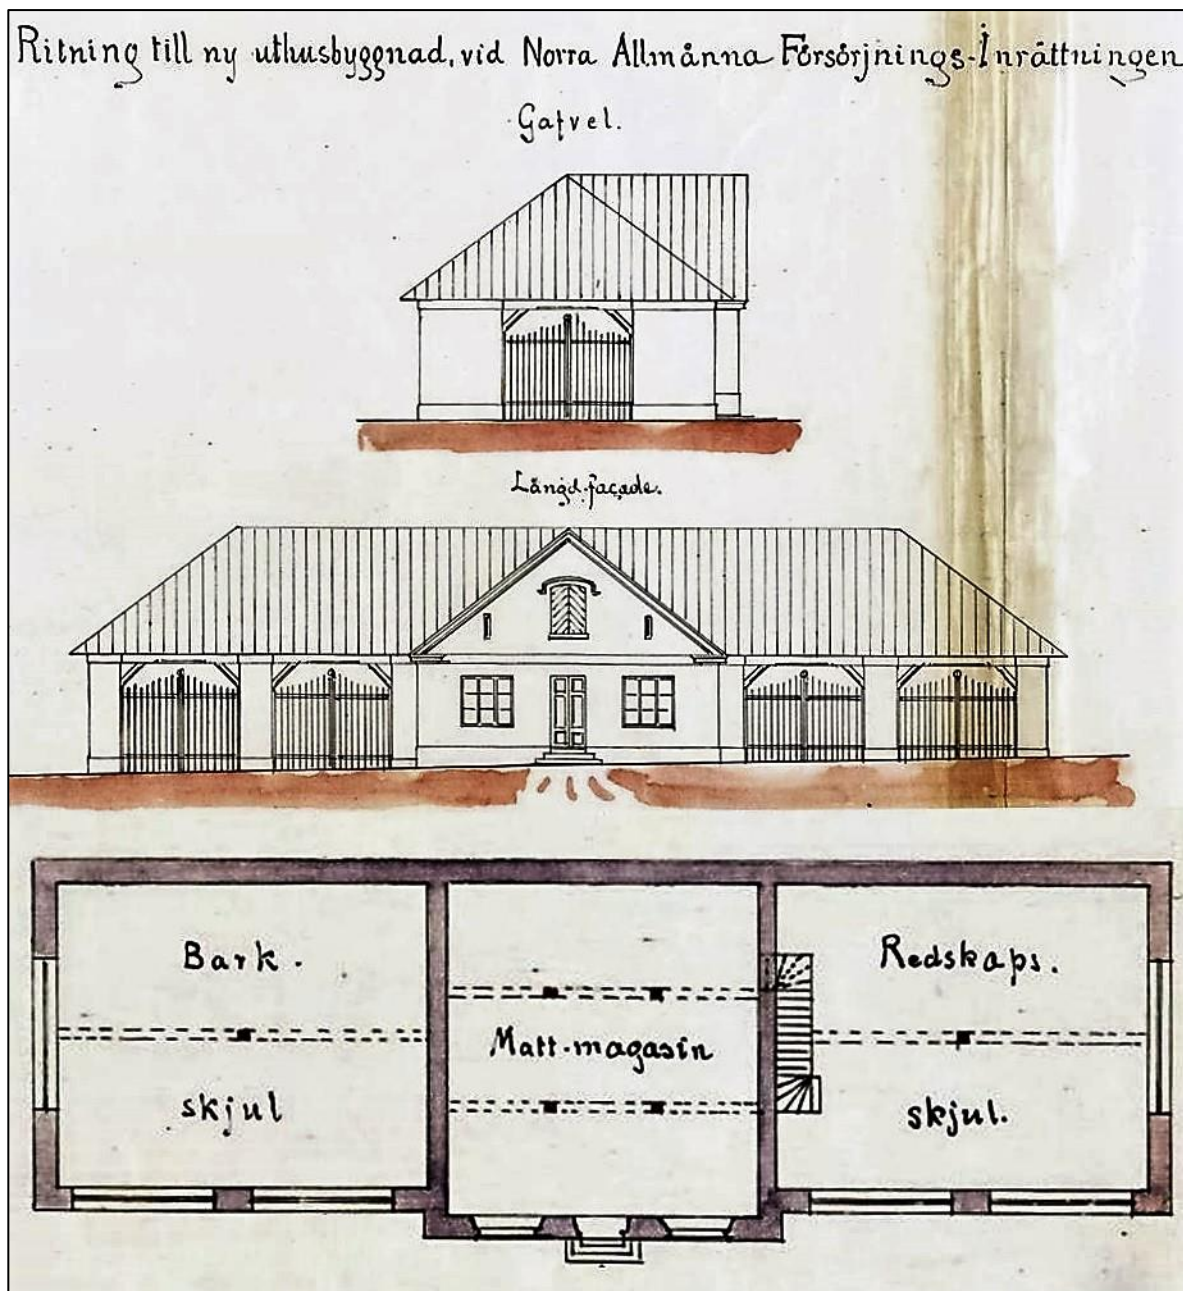 Ritning till ny uthusbyggnad, vid Norra Allmänna Försörjnings-Inrättningen
Gafvel.
Längd-façade.
Bark.
skjul
Matt-magasin
Redskaps.
skjul.